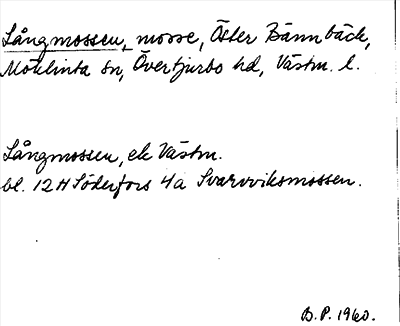 Långmossen, mosse, Öster Bännbäck,
Möklinta sn, Övertjurbo hd, Västm. l.
Långmossen, ek Västm.
bl. 12 H Söderfors 4a Svarvviksmossen.
B.P. 1960.